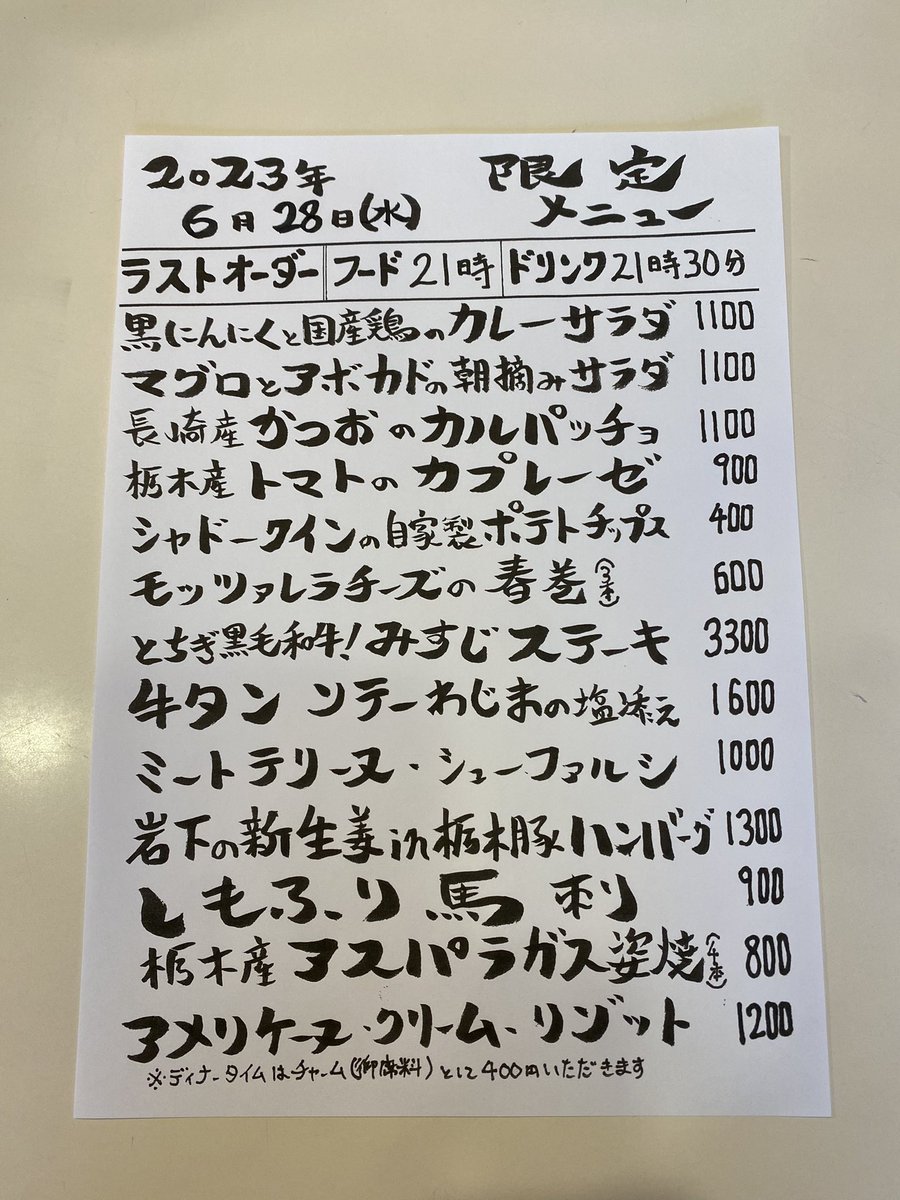 2023年
6月28日(水)
限定
メニュー
ラストオーダー フード21時 ドリンク21時30分
黒にんにくと国産鶏のカレーサラダ 1100
マグロとアボカドの朝摘みサラダ 1100
長崎産 かつおのカルパッチョ 1100
栃木産 トマトのカプレーゼ 900
シャドークインの自家製ポテトチップス 400
モッツァレラチーズの春巻(3本) 600
とちぎ黒毛和牛!みすじステーキ 3300
牛タン ソテーわじまの塩添え 1600
ミートテリーヌ・シューファルシ 1000
岩下の新生姜in栃木豚ハンバーグ 1300
しもふり馬刺 900
栃木産 アスパラガス姿焼(4本) 800
アメリケーヌ・クリーム・リゾット 1200
※ディナータイムはチャーム(御席料)として400円いただきます